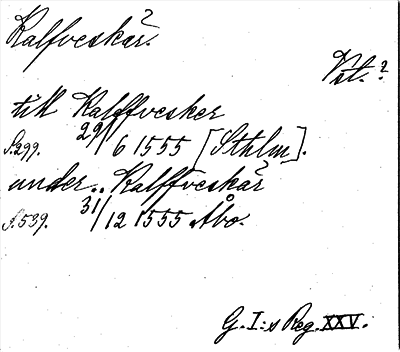 Kalfveskär.?
Vst.?
till Kalffvesker
S. 299. 29/6 1555 [Sthlm].
under.. Kalffveskär
S. 539. 31/12 1555 Åbo.
G. I:s Reg. XXV.